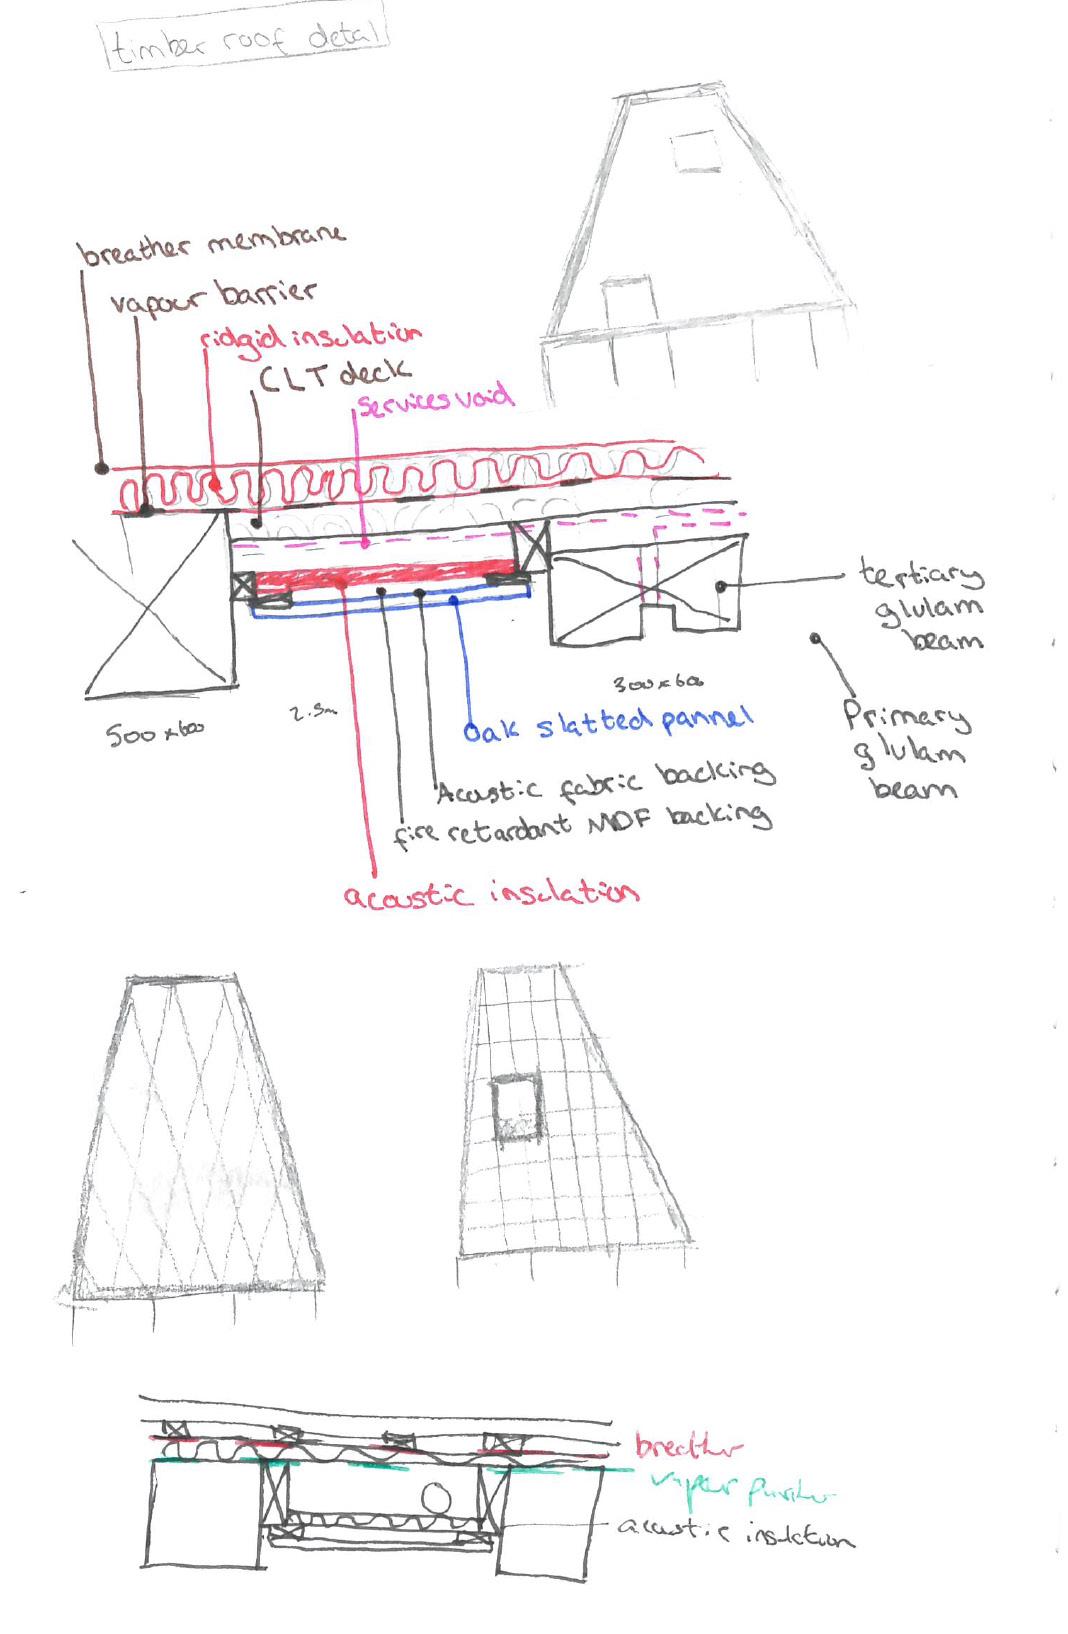 timber roof detal
breather membrane
vapour barrier
ridgid insulation
CLT deck
Services void
tertiary
glulam
beam
300x600
500x600
2.5m
Oak slatted pannel
Primary
glulam
beam
Acoustic fabric backing
fire retardant MDF backing
acoustic insulation
breather
vapour
acoustic insulation